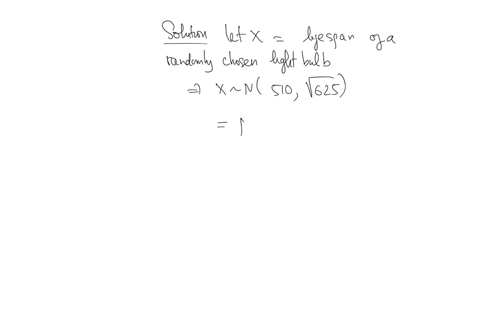 Solution let X = lifespan of a
randomly chosen light bulb
⇒ X ~ N( 510, √625)
=